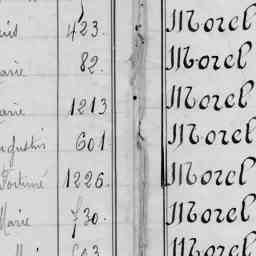 423. Morel
82. Morel
arie 1213 Morel
ugustin 601 Morel
Fortuné 1226. Morel
Marie 730. Morel
Morel